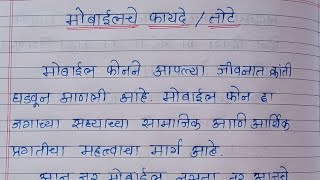 मोबाईलचे फायदे / तोटे
मोबाईल फोनने आपल्या जीवनात क्रांती
घडवून आणली आहे. मोबाईल फोन हा
जगाच्या सध्याच्या सामाजिक आणि आर्थिक
प्रगतीचा महत्वाचा मार्ग आहे.
आज जर मोबाईल नसता तर आपले